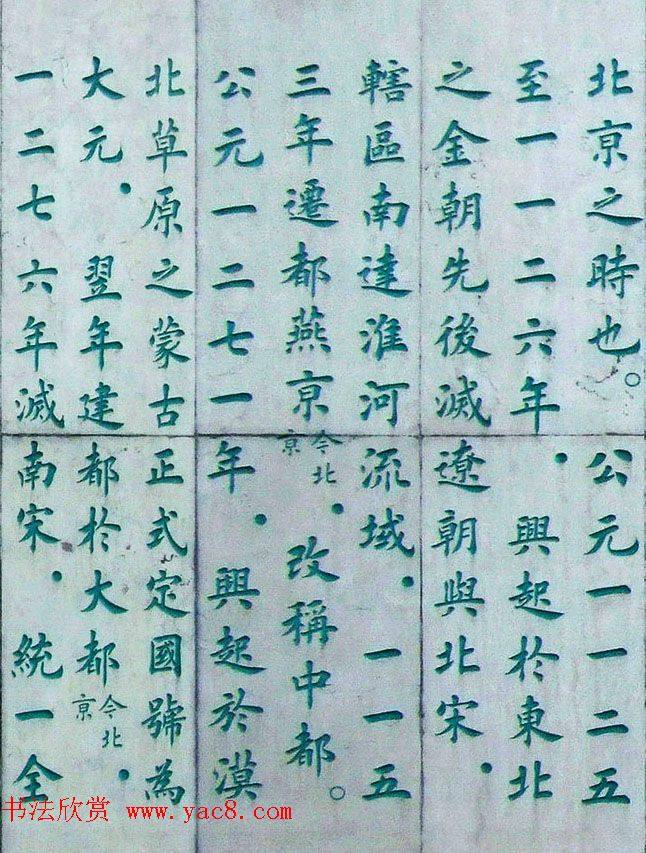 北京之時也。公元一一二五
至一一二六年·興起於東北
之金朝先後滅遼朝與北宋·
轄區南達淮河流域·一一五
三年遷都燕京今北京·改稱中都。
公元一二七一年·興起於漠
北草原之蒙古正式定國號為
大元·翌年建都於大都今北京·
一二七六年滅南宋·統一全
书法欣赏 www.yac8.com